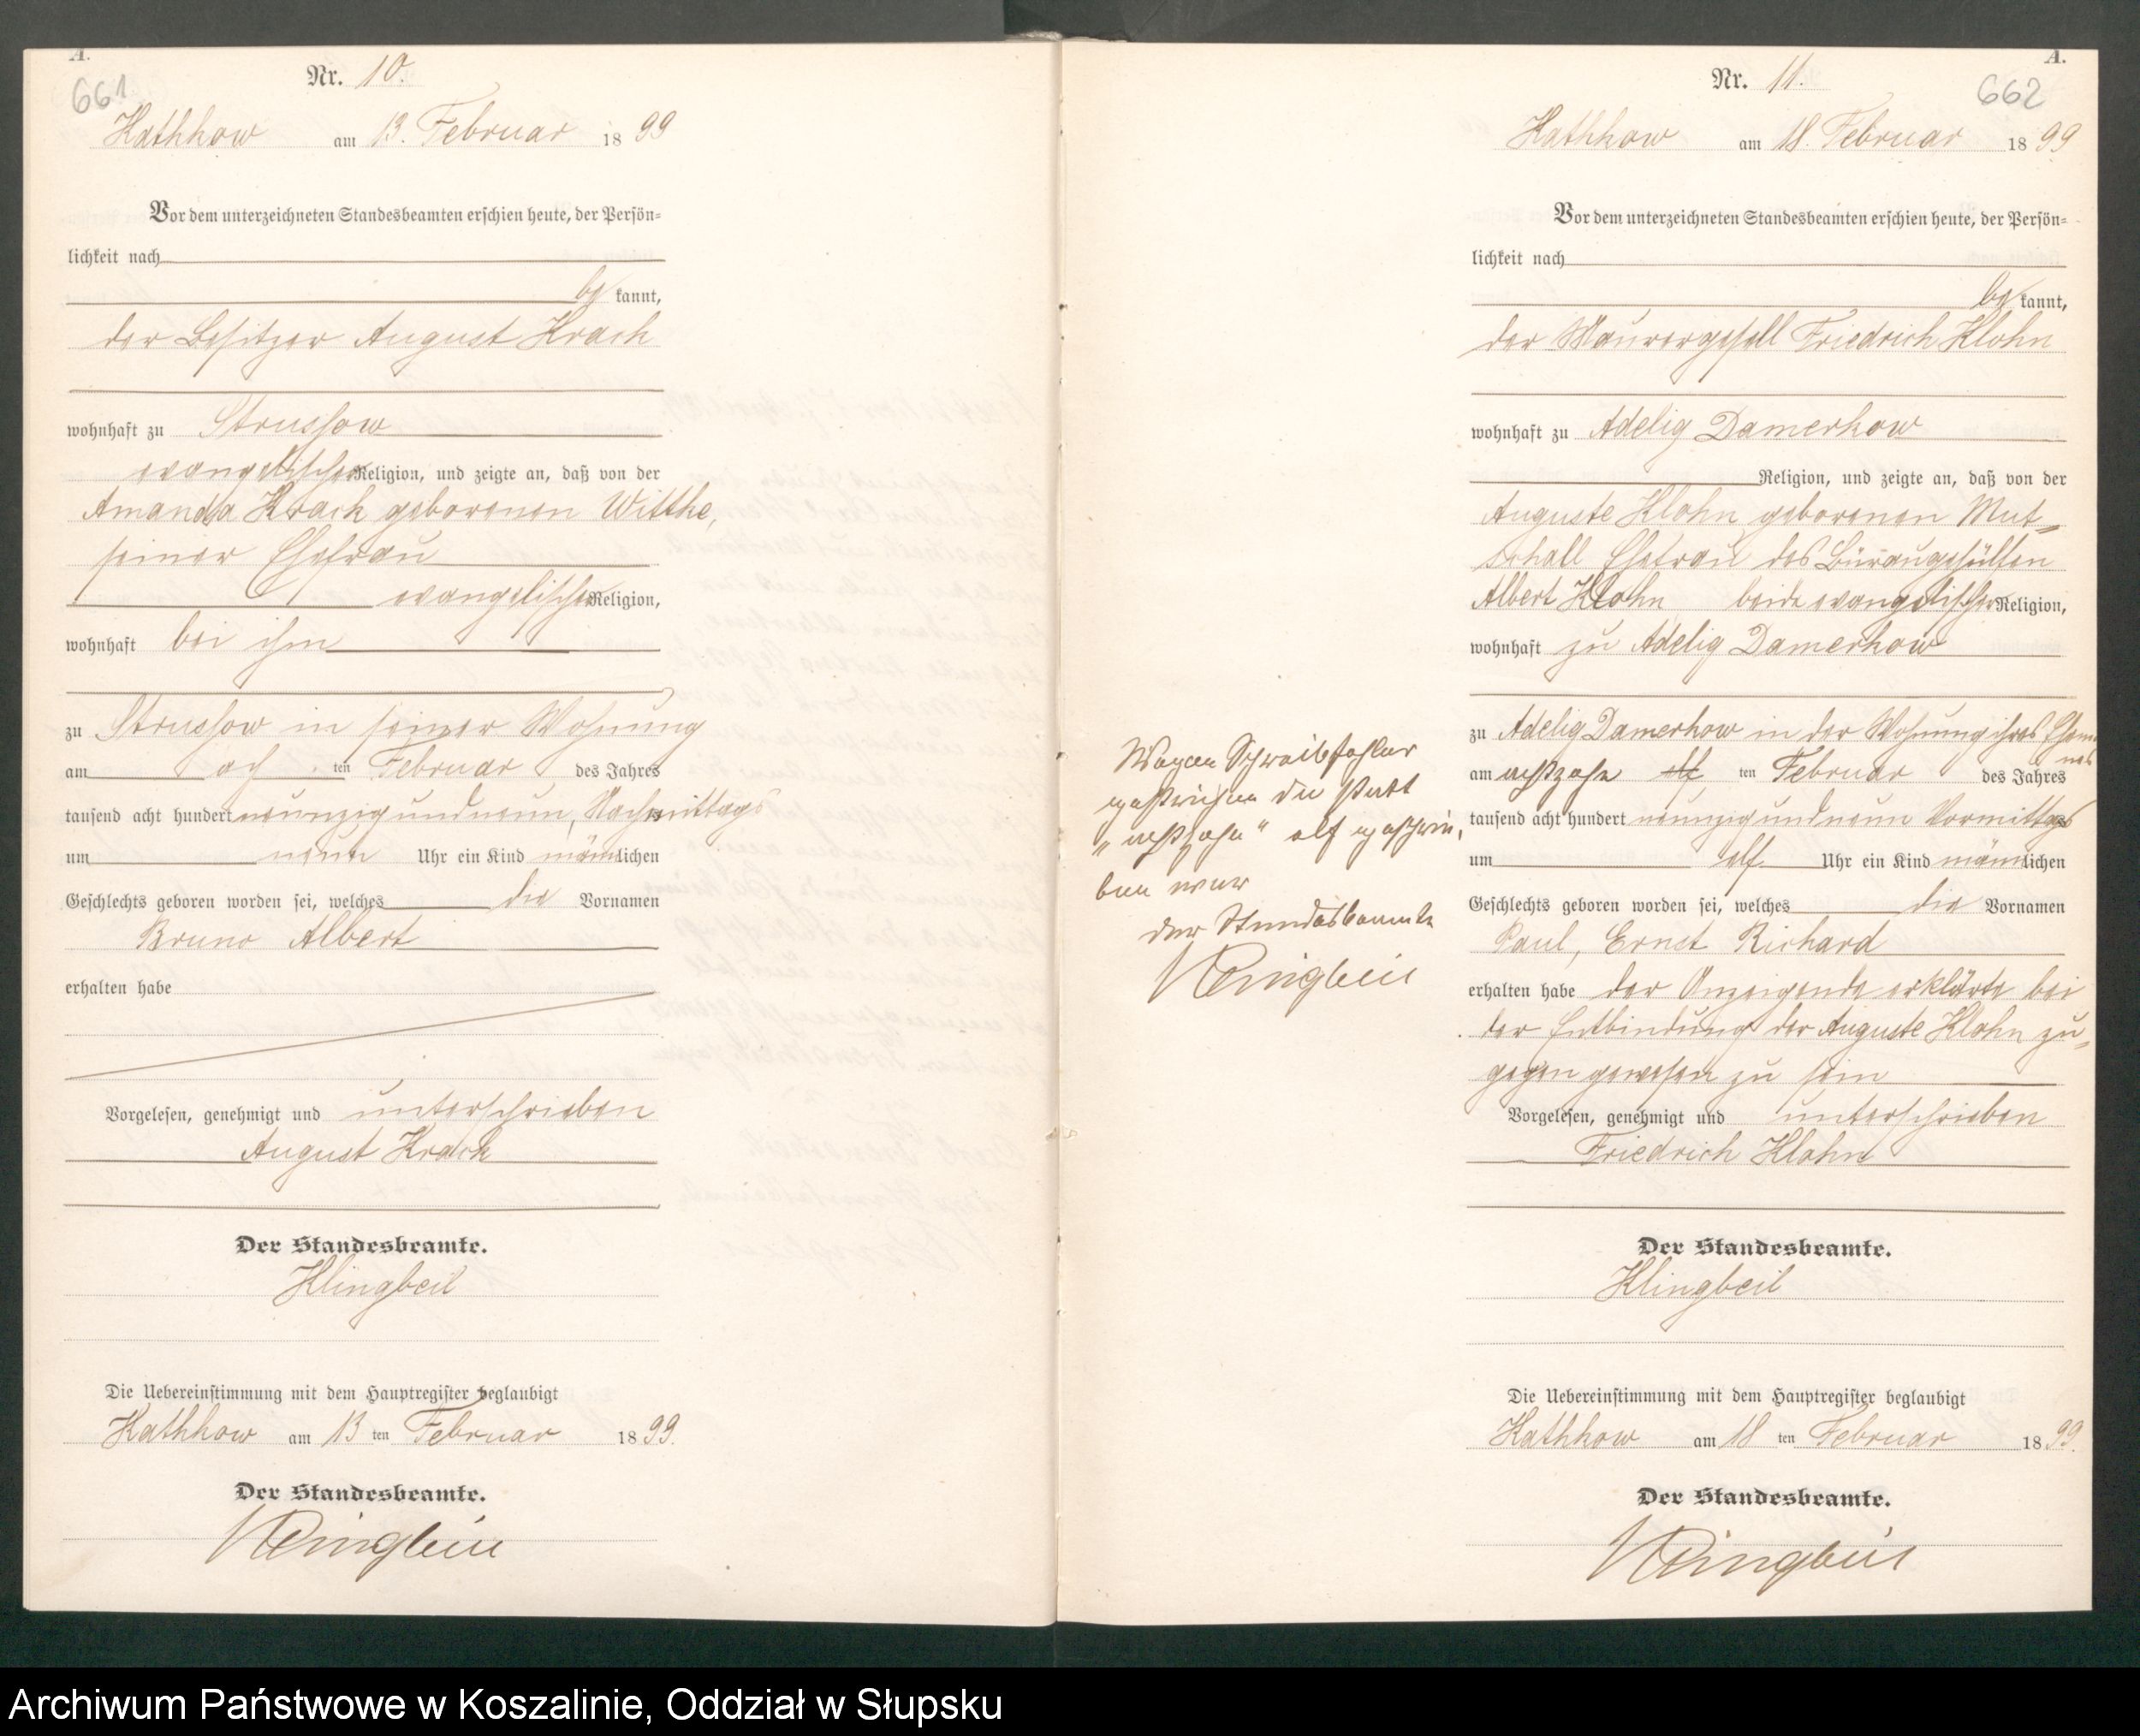 A.
661
Nr. 10.
Kathkow am 13. Februar 1899
Vor dem unterzeichneten Standesbeamten erschien heute, der Persön-
lichkeit nach
be kannt,
der Besitzer August Krack
wohnhaft zu Strussow
evangelischer Religion, und zeigte an, daß von der
Amanda Krack geborenen Witthe,
seiner Ehefrau
evangelischer Religion,
wohnhaft bei ihm
zu Strussow in seiner Wohnung
am ach ten Februar des Jahres
tausend acht hundert neunzig und neun, Nachmittags
um neun Uhr ein Kind männlichen
Geschlechts geboren worden sei, welches die Vornamen
Bruno Albert
erhalten habe
Vorgelesen, genehmigt und unterschrieben
August Krack
Der Standesbeamte.
Klingbeil
Die Uebereinstimmung mit dem Hauptregister beglaubigt
Kathkow am 13 ten Februar 1899.
Der Standesbeamte.
Klingbeil
A.
662
Nr. 11.
Kathkow am 18. Februar 1899
Vor dem unterzeichneten Standesbeamten erschien heute, der Persön-
lichkeit nach
be kannt,
der Maurergesell Friedrich Klohn
wohnhaft zu Adelig Damerkow
Religion, und zeigte an, daß von der
Auguste Klohn geborenen Mut-
schall Ehefrau des Büraugehülfen
Albert Klohn beide evangelischer Religion,
wohnhaft zu Adelig Damerkow
zu Adelig Damerkow in der Wohnung ihres Ehema
nes
am achtzehn elf ten Februar des Jahres
tausend acht hundert neunzig und neun Vormittags
um elf Uhr ein Kind männlichen
Geschlechts geboren worden sei, welches die Vornamen
Paul, Ernst Richard
erhalten habe der Anzeigende erklärte bei
der Entbindung der Auguste Klohn zu-
gegen gewesen zu sein
Vorgelesen, genehmigt und unterschrieben
Friedrich Klohn
Der Standesbeamte.
Klingbeil
Die Uebereinstimmung mit dem Hauptregister beglaubigt
Kathkow am 18 ten Februar 1899.
Der Standesbeamte.
Klingbeil
Wegen Schreibfehler
gestrichen da statt
„achtzehn" elf geschrie,
ben war
der Standesbeamte
Klingbeil
Archiwum Państwowe w Koszalinie, Oddział w Słupsku